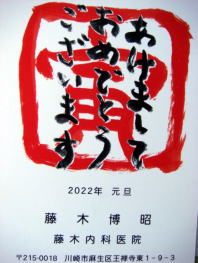 あけまして
おめでとう
ございます
寅
2022年 元旦
藤木博昭
藤木内科医院
〒215-0018 川崎市麻生区王禅寺東1-9-3